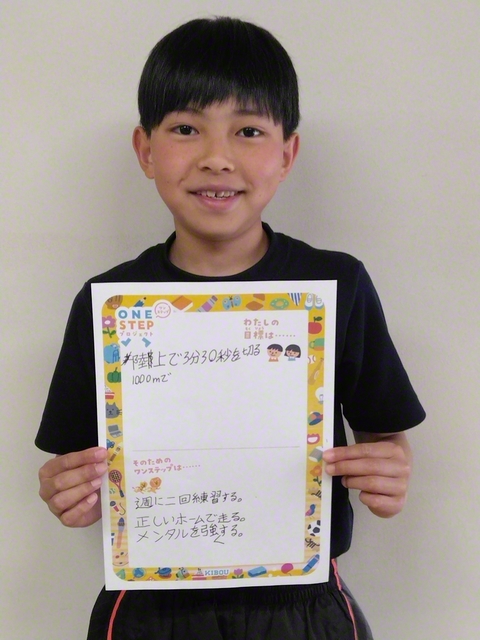 ONE
STEP
プロジェクト
わたしの
目標は……
陸上で3分30秒を切る
1000mで
そのための
ワンステップは……
週に二回練習する。
正しいホームで走る。
メンタルを強くする。
KIBOU